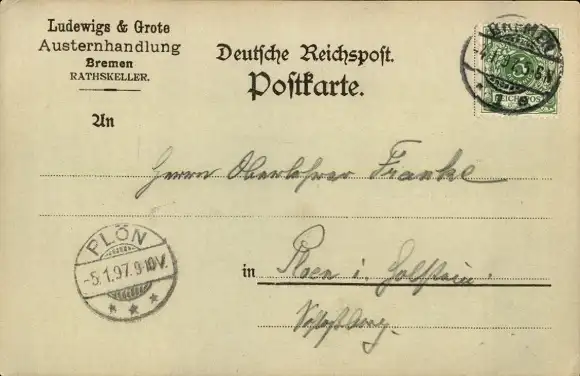 Ludewigs & Grote
Austernhandlung
Bremen
RATHSKELLER.
Deutsche Reichspost.
Postkarte.
BREMEN
5
REICHSPOST
An
Herrn Oberlehrer Franke
PLÖN
-5.1.97.9-10V.
* * *
in Ploen i. Holstein.